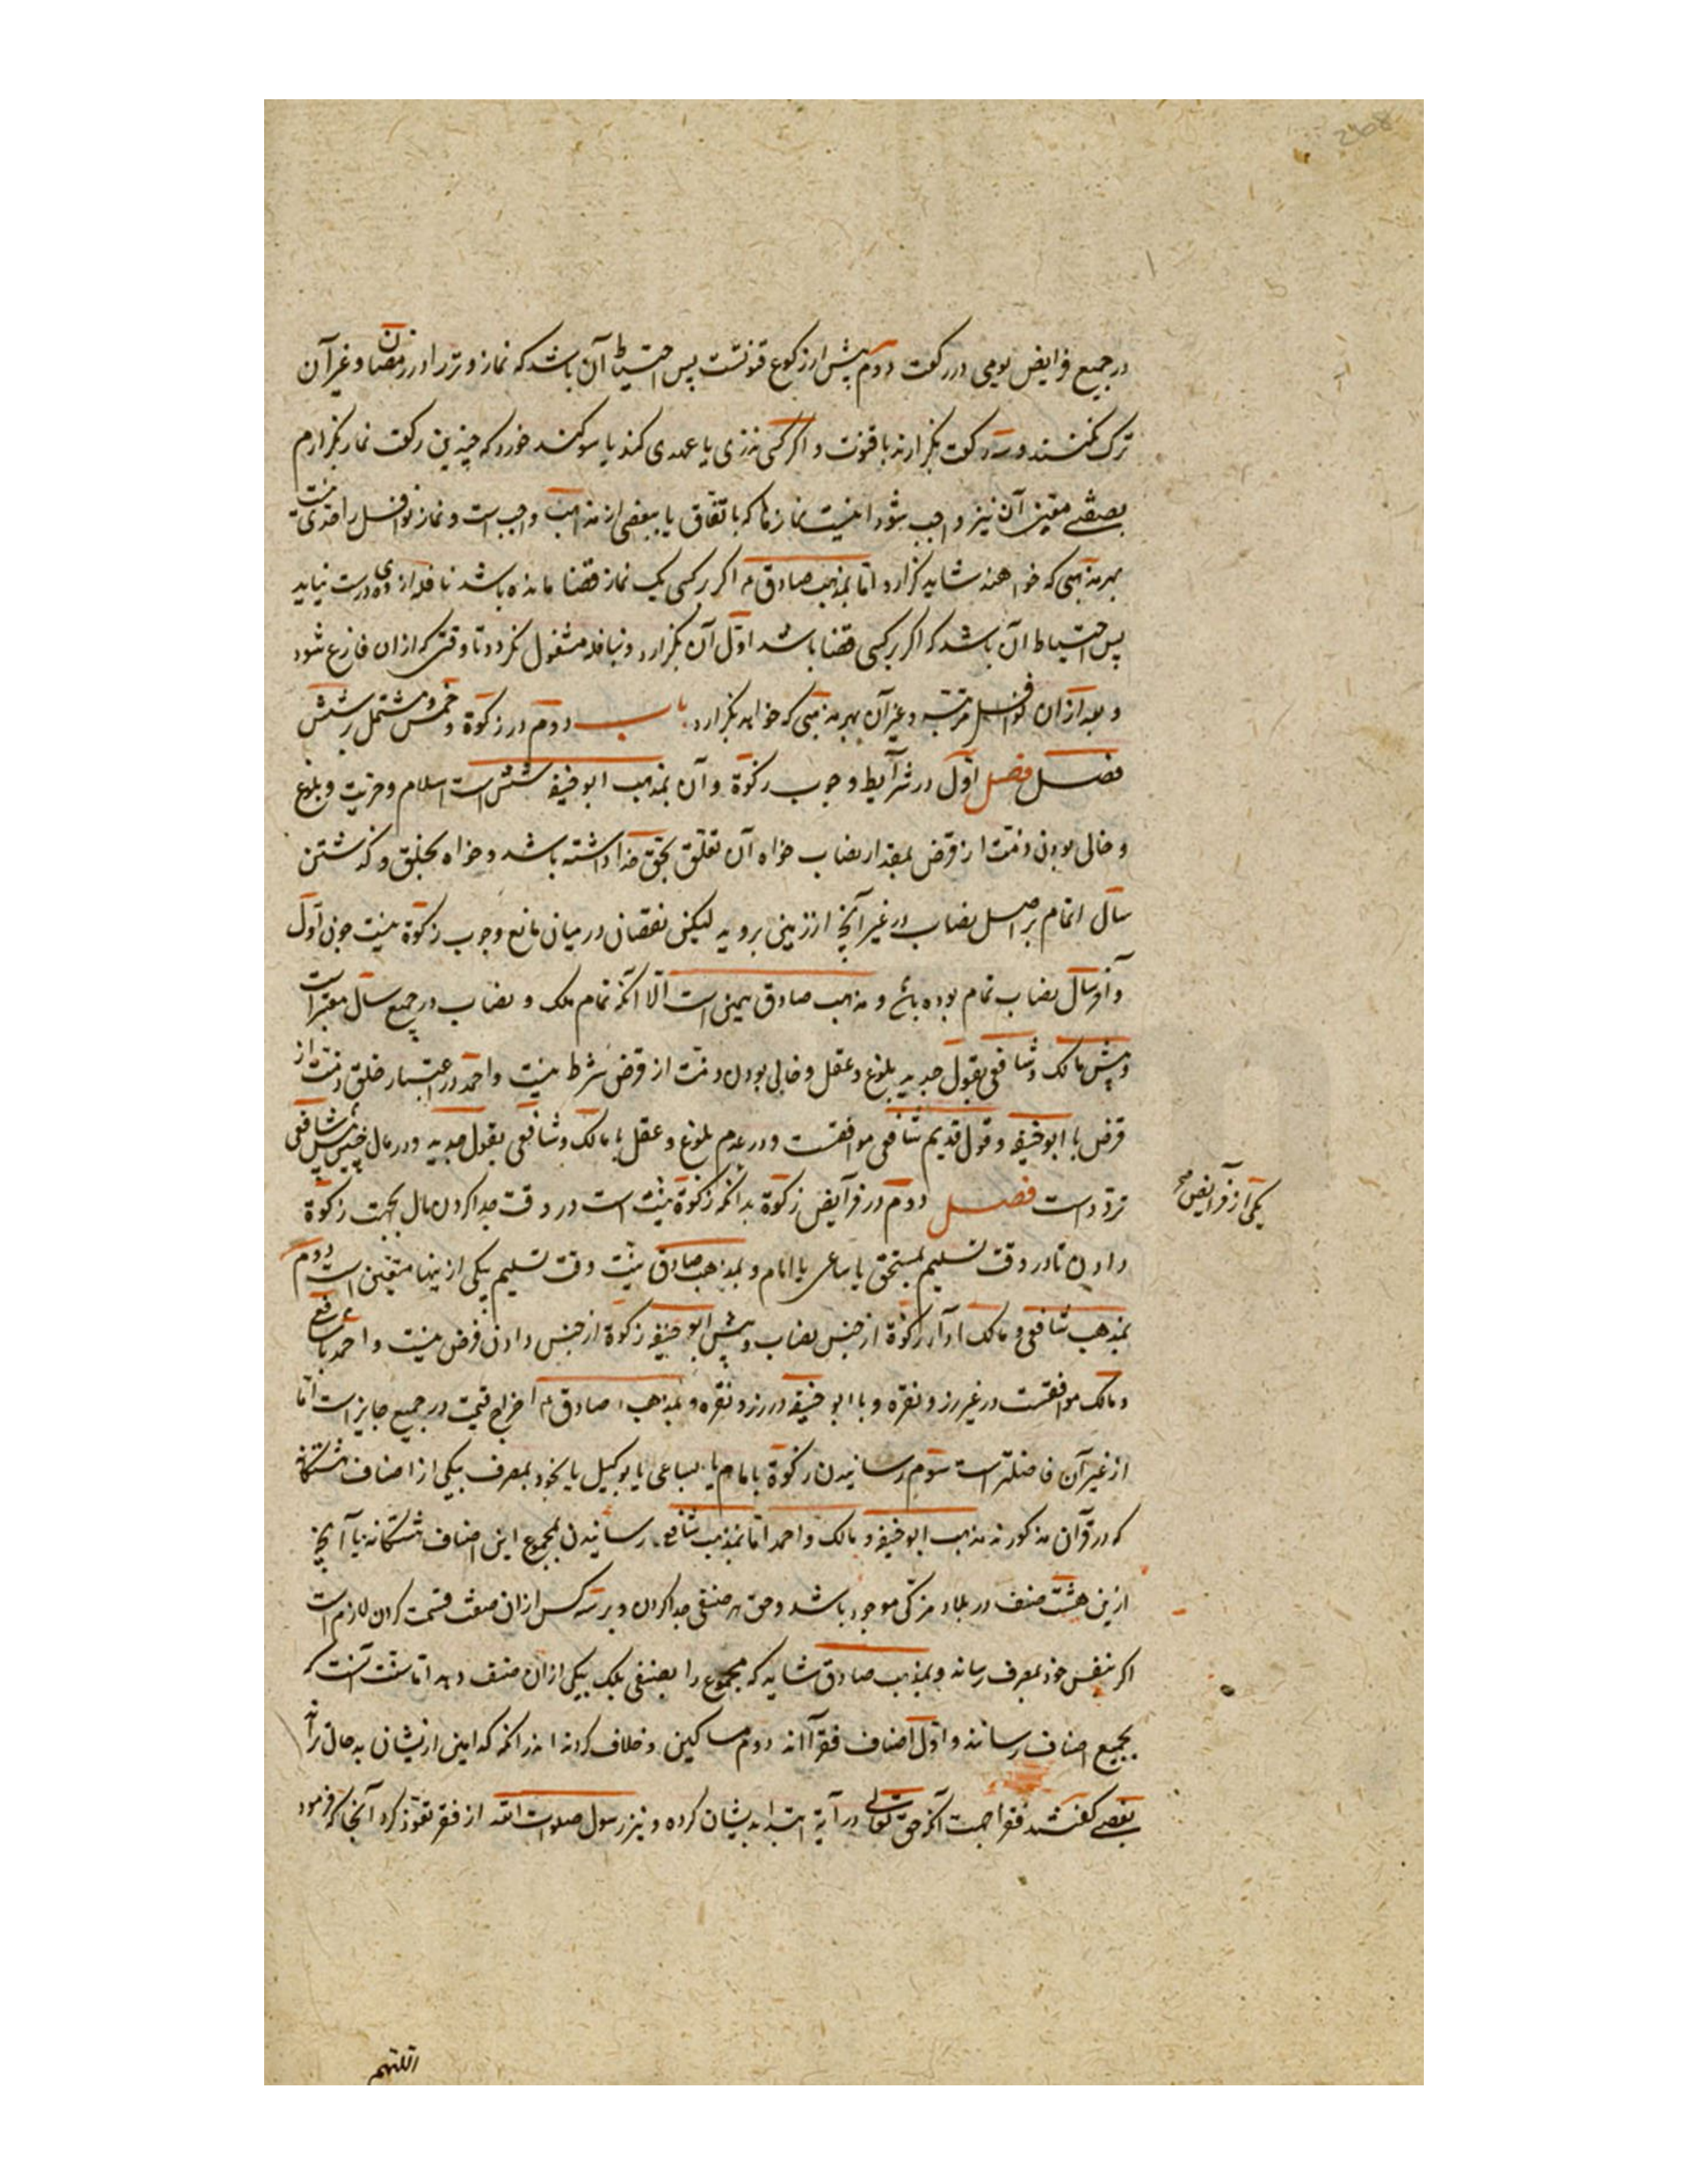 در جمیع فرایض یومی در رکعت دوم پیش از رکوع قنوتست پس احتیاط آن باشد که نماز وتر را در رمضان و غیر آن
ترک نکنند و سه رکعت بگزارند با قنوت و اگر کسی نذری یا عهدی کند یا سوگند خورد که چندین رکعت نماز بگزارم
بصفتی معین آن نیز واجب شود اینست نمازها که باتفاق یا ببعضی از مذاهب واجب است و نماز نوافل را حدی نیست
بهر مذهبی که خواهند شاید گزارد اما بمذهب صادق ع م اگر بر کسی یک نماز قضا مانده باشد نافله از وی درست نیاید
پس احتیاط آن باشد که اگر بر کسی قضا باشد اول آن بگزارد و بنافله مشغول نگردد تا وقتی که از آن فارغ شود
و بعد از آن نوافل مرتبه و غیر آن بهر مذهبی که خواهد بگزارد باب دوم در زکوة و خمس و مشتمل بر شش
فصل فصل اول در شرآیط وجوب زکوة و آن بمذهب ابو حنیفه شش است اسلام و حریت و بلوغ
و خالی بودن ذمت از قرض بمقدار نصاب خواه آن تعلق بحق خدا داشته باشد و خواه بخلق و گذشتن
سال تمام بر اصل نصاب در غیر آنچ از زمینی بروید لیکن نقصان در میان مانع وجوب زکوة نیست چون اول
و آخر سال نصاب تمام بوده باشد و مذهب صادق همین است الا آنکه تمام ملک و نصاب در جمیع سال معتبر است
و پیش مالک و شافعی بقول جدید بلوغ و عقل و خالی بودن ذمت از قرض شرط نیست و احمد در اعتبار خلو ذمت از
قرض با ابو حنیفه و قول قدیم شافعی موافقست و در عدم بلوغ و عقل با مالک و شافعی بقول جدید و در مال پیش شافعی
تردد است فصل دوم در فرآیض زکوة بدانکه زکوة نیت است در وقت جدا کردن مال بجهت زکوة
یکی از فرآیض صح
دادن تا در وقت تسلیم بمستحق یا ساعی یا امام و بمذهب صادق نیت وقت تسلیم بیکی ازینها متعین است دوم
بمذهب شافعی و مالک ادآء زکوة از جنس نصاب و پیش ابو حنیفه زکوة از جنس دادن فرض نیست و احمد با شافعی
و مالک موافقست در غیر زر و نقره و با ابو حنیفه در زر و نقره و بمذهب صادق ع م اخراج قیمت در جمیع جایز است اما
از غیر آن فاضلتر است سوم رسانیدن زکوة بامام یا بساعی یا بوکیل یا بخود بمصرف بیکی از اصناف هشتگانه
که در قرآن مذکورند مذهب ابو حنیفه و مالک و احمد اما بمذهب شافعی رسانیدن بمجموع این اصناف هشتگانه یا آنچ
ازین هشت صنف در بلاد مزکی موجود باشد و حق هر صنفی جدا کردن و بر سه کس از آن صنف قسمت کردن لازم است
اگر بنفس خود بمصرف رساند و بمذهب صادق شاید که مجموع را بصنفی بلک بیکی از آن صنف دهد اما سنت آنست که
بجمیع اصناف رسانند و اول اصناف فقرآاند دوم مساکین و خلاف کردند اندر آنکه کدامین ازیشان بدحال تراند
بعضی گفتند فقرا جهت آنکه حق تعالی در آیة ابتدا بدیشان کرده و نیز رسول صلوات الله از فقر تعوذ کرد آنجا که فرمود
اللهم